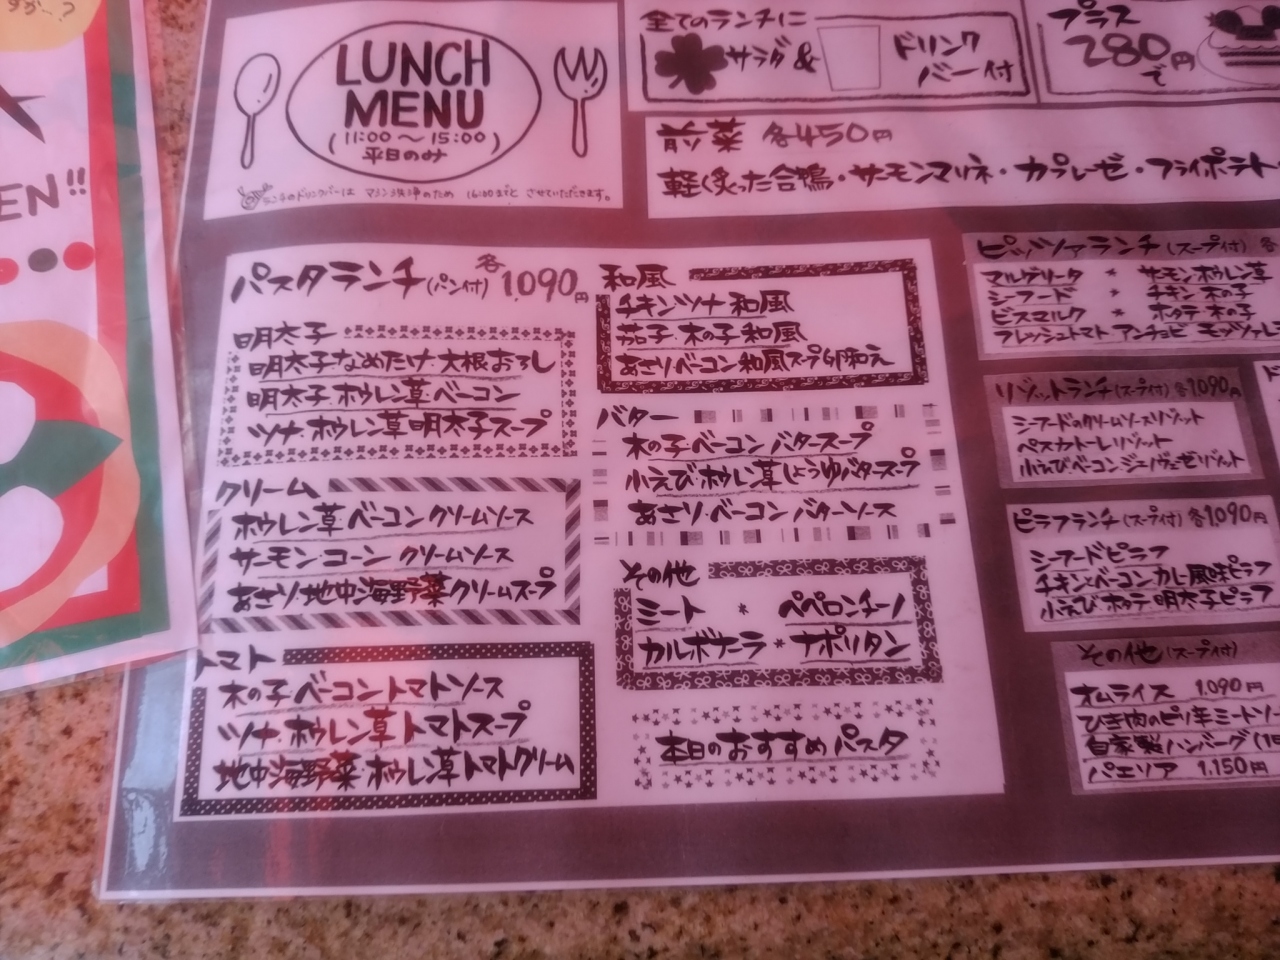 EN!!
LUNCH
MENU
(11:00～15:00)
平日のみ
ランチのドリンクバーは マシン洗浄のため 16:00までと させていただきます。
全てのランチに
サラダ&
ドリンク
バー付
プラス
280円
で
前菜 各450円
軽く炙った合鴨・サーモンマリネ・カプレーゼ・フライポテト
パスタランチ(パン付) 各1,090円
明太子
明太子・なめたけ・大根おろし
明太子・ホウレン草・ベーコン
ツナ・ホウレン草明太子スープ
クリーム
ホウレン草・ベーコンクリームソース
サーモン・コーン クリームソース
あさり・地中海野菜クリームスープ
トマト
木の子・ベーコントマトソース
ツナ・ホウレン草トマトスープ
地中海野菜・ホウレン草トマトクリーム
和風
チキン・ツナ 和風
茄子・木の子和風
あさり・ベーコン和風スープ卵和え
バター
木の子・ベーコン バタースープ
小えび・ホウレン草しょうゆバタースープ
あさり・ベーコン バターソース
その他
ミート * ペペロンチーノ
カルボナーラ * ナポリタン
本日のおすすめパスタ
ピッツァランチ(スープ付) 各
マルゲリータ * サーモン・ホウレン草
シーフード * チキン・木の子
ビスマルク * ホタテ・木の子
フレッシュトマト アンチョビ モッツァレ
リゾットランチ(スープ付) 各1,090円
シーフードのクリームソースリゾット
ペスカトーレリゾット
小えびベーコンジェノヴェーゼリゾット
ピラフランチ(スープ付) 各1,090円
シーフードピラフ
チキン・ベーコンカレー風味ピラフ
小えび・ホタテ 明太子ピラフ
その他(スープ付)
オムライス 1,090円
ひき肉のピリ辛ミートソー
自家製ハンバーグ
パエリア 1,150円